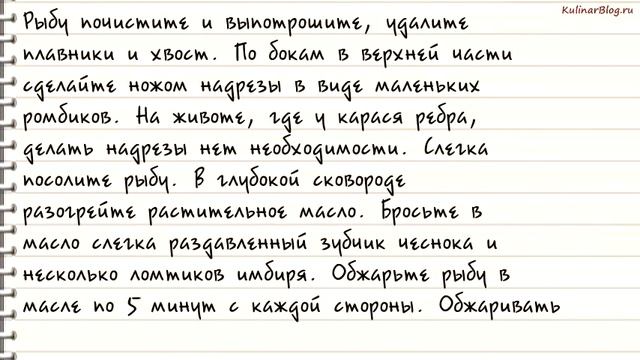 KulinarBlog.ru
Рыбу почистите и выпотрошите, удалите
плавники и хвост. По бокам в верхней части
сделайте ножом надрезы в виде маленьких
ромбиков. На животе, где у карася ребра,
делать надрезы нет необходимости. Слегка
посолите рыбу. В глубокой сковороде
разогрейте растительное масло. Бросьте в
масло слегка раздавленный зубчик чеснока и
несколько ломтиков имбиря. Обжарьте рыбу в
масле по 5 минут с каждой стороны. Обжаривать